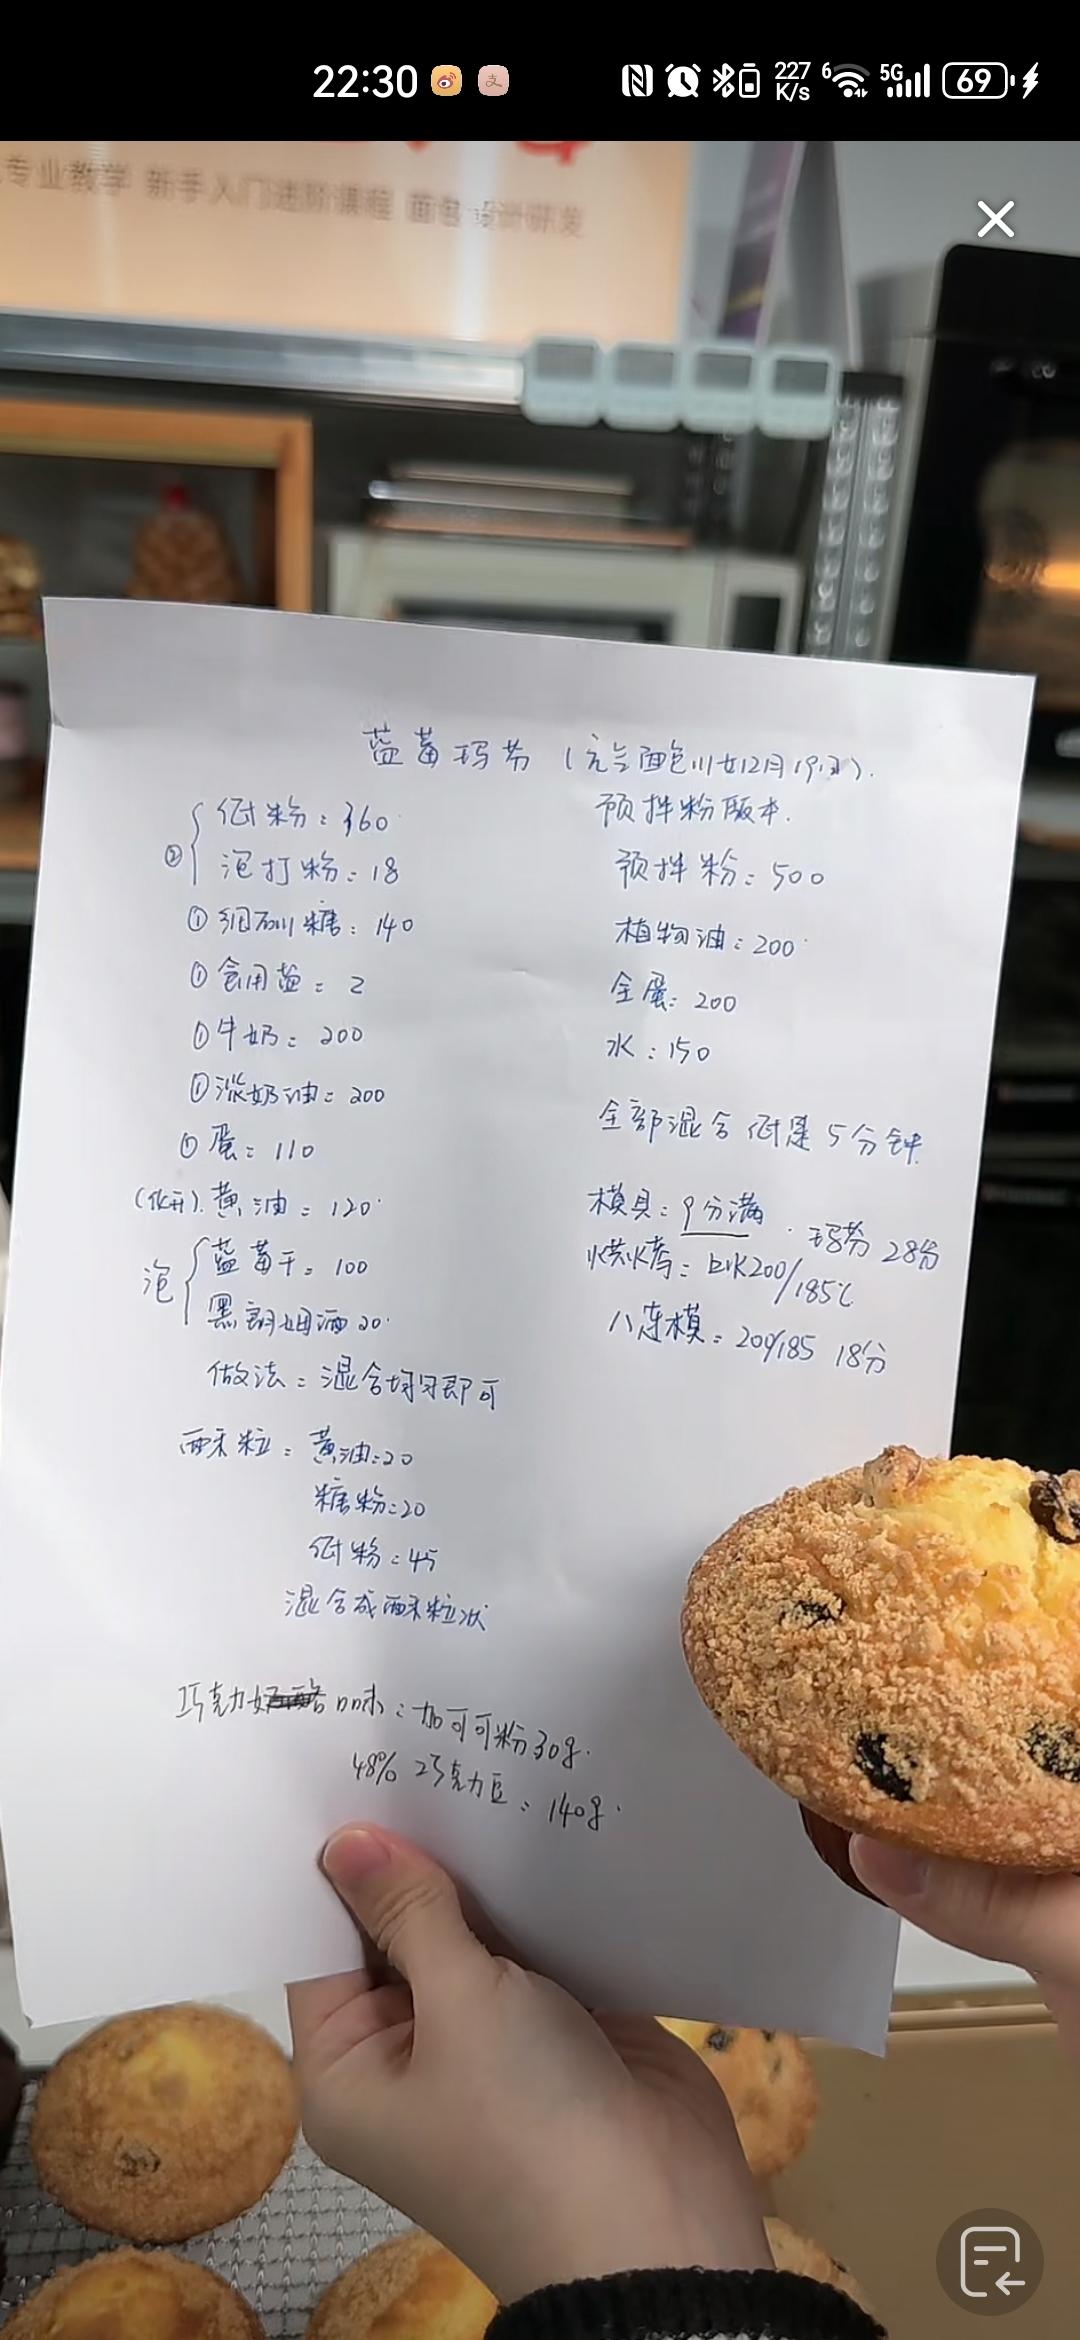 22:30
227 K/s
6
5G
69
专业教学 新手入门进阶课程 面包 设计研发
蓝莓玛芬
12月19
② 低粉:360
泡打粉:18
① 细砂糖:140
① 食用盐:2
① 牛奶:200
① 淡奶油:200
① 蛋:110
(化开).黄油:120
泡 蓝莓干:100
黑朗姆酒20
做法:混合均匀即可
酥粒:黄油:20
糖粉:20
低粉:45
混合成酥粒状
预拌粉版本.
预拌粉:500
植物油:200
全蛋:200
水:150
全部混合 低速 5分钟
模具:9分满
烘烤:200/185℃ 玛芬 28分
八连模:200/185 18分
巧克力 口味:加可可粉30g.
48% 巧克力豆:140g.